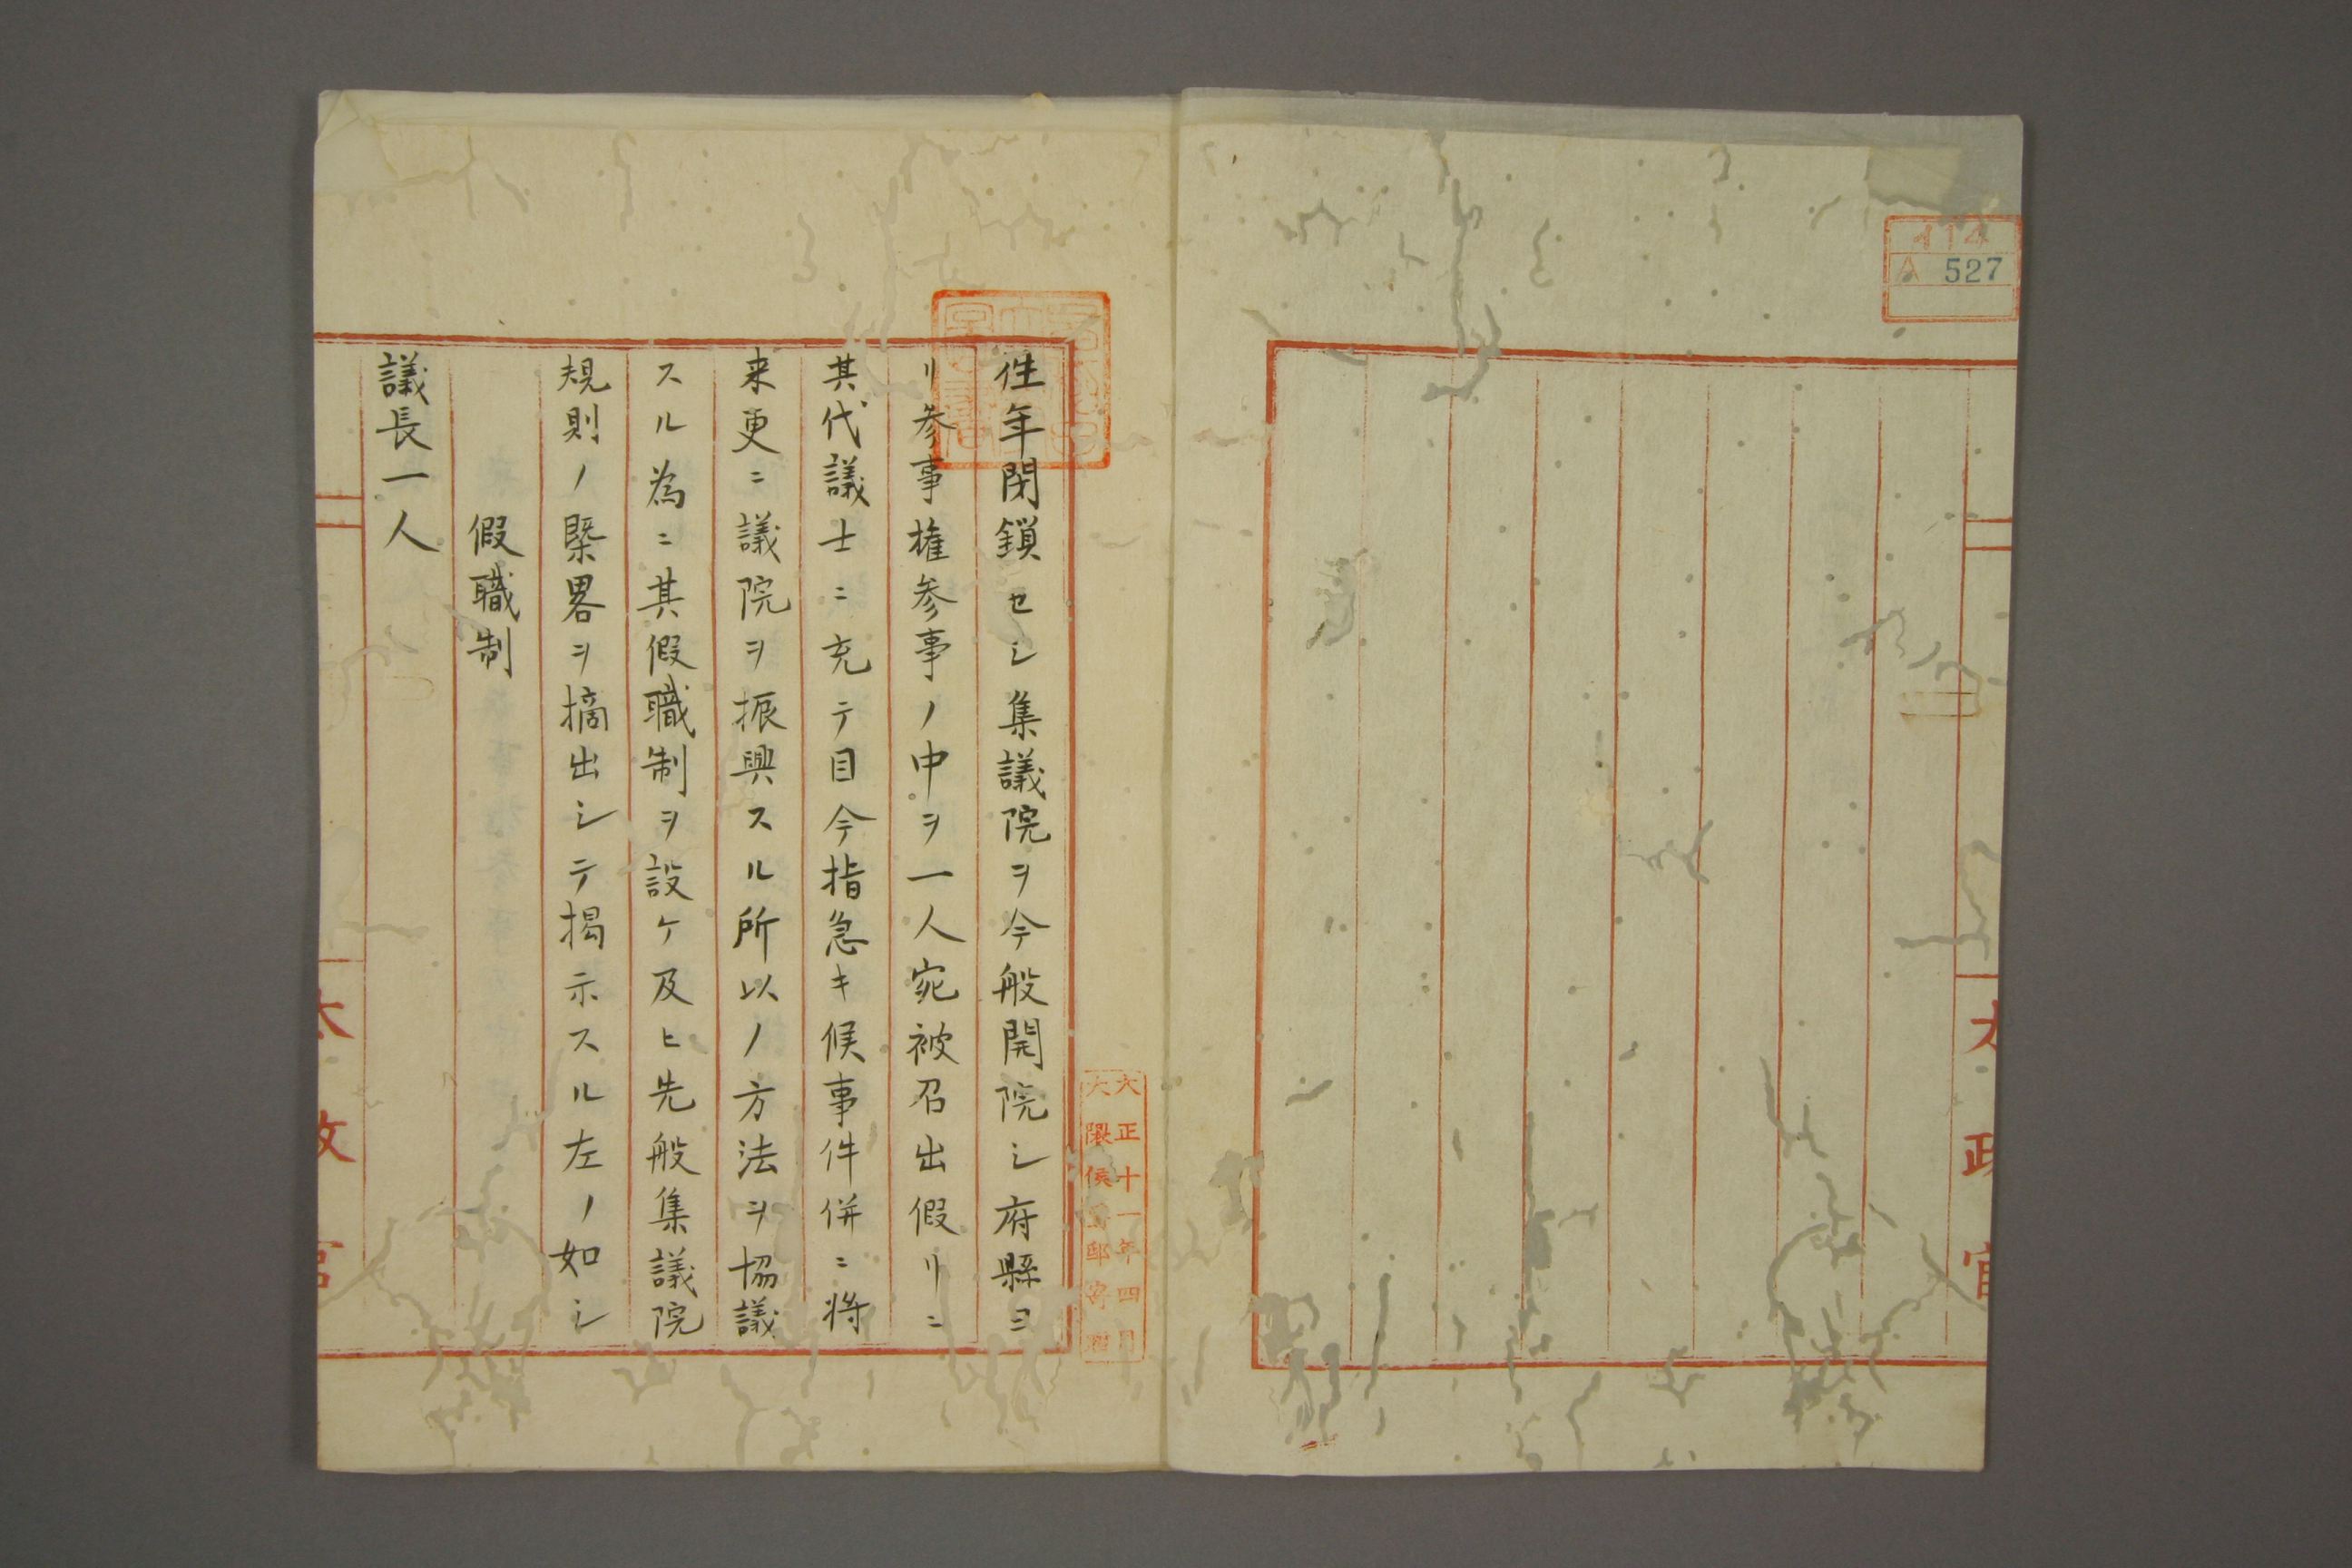 イ14
A 527
太政官
大正十一年四月
大隈侯爵邸寄贈
往年閉鎖セシ集議院ヲ今般開院シ府縣ヨ
リ参事権参事ノ中ヲ一人宛被召出假リニ
其代議士ニ充テ目今指急キ候事件併ニ将
来更ニ議院ヲ振興スル所以ノ方法ヲ協議
スル為ニ其假職制ヲ設ケ及ヒ先般集議院
規則ノ槩畧ヲ摘出シテ掲示スル左ノ如シ
假職制
議長一人
太政官